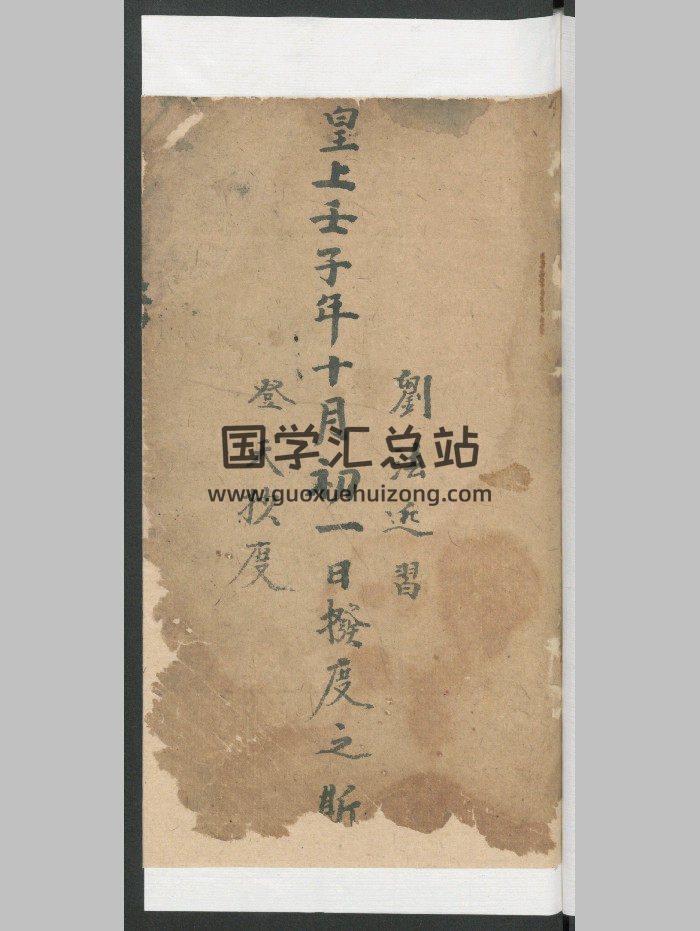 劉法近習
皇上壬子年十月初一日撥度之斯
登天拔度
国学汇总站
www.guoxuehuizong.com